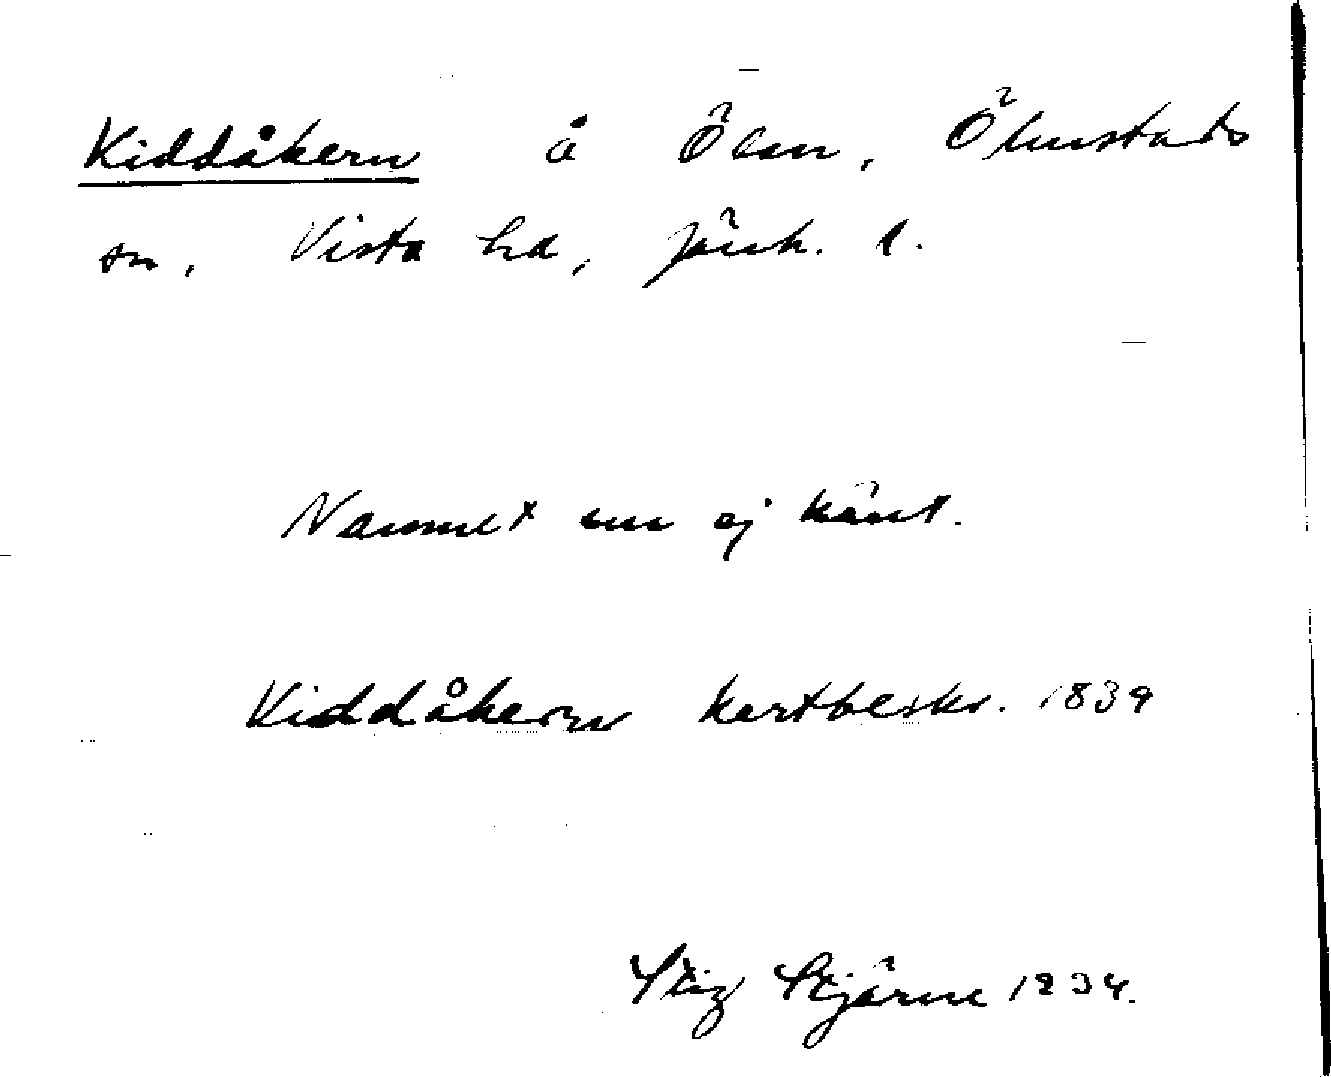 Kiddåkern å Ölan, Ölmstads
sn, Vista hd, Jönk. l.
Namnet nu ej känt.
Kiddåkern kartbeskr. 1839
Stig Stjärne 1934.